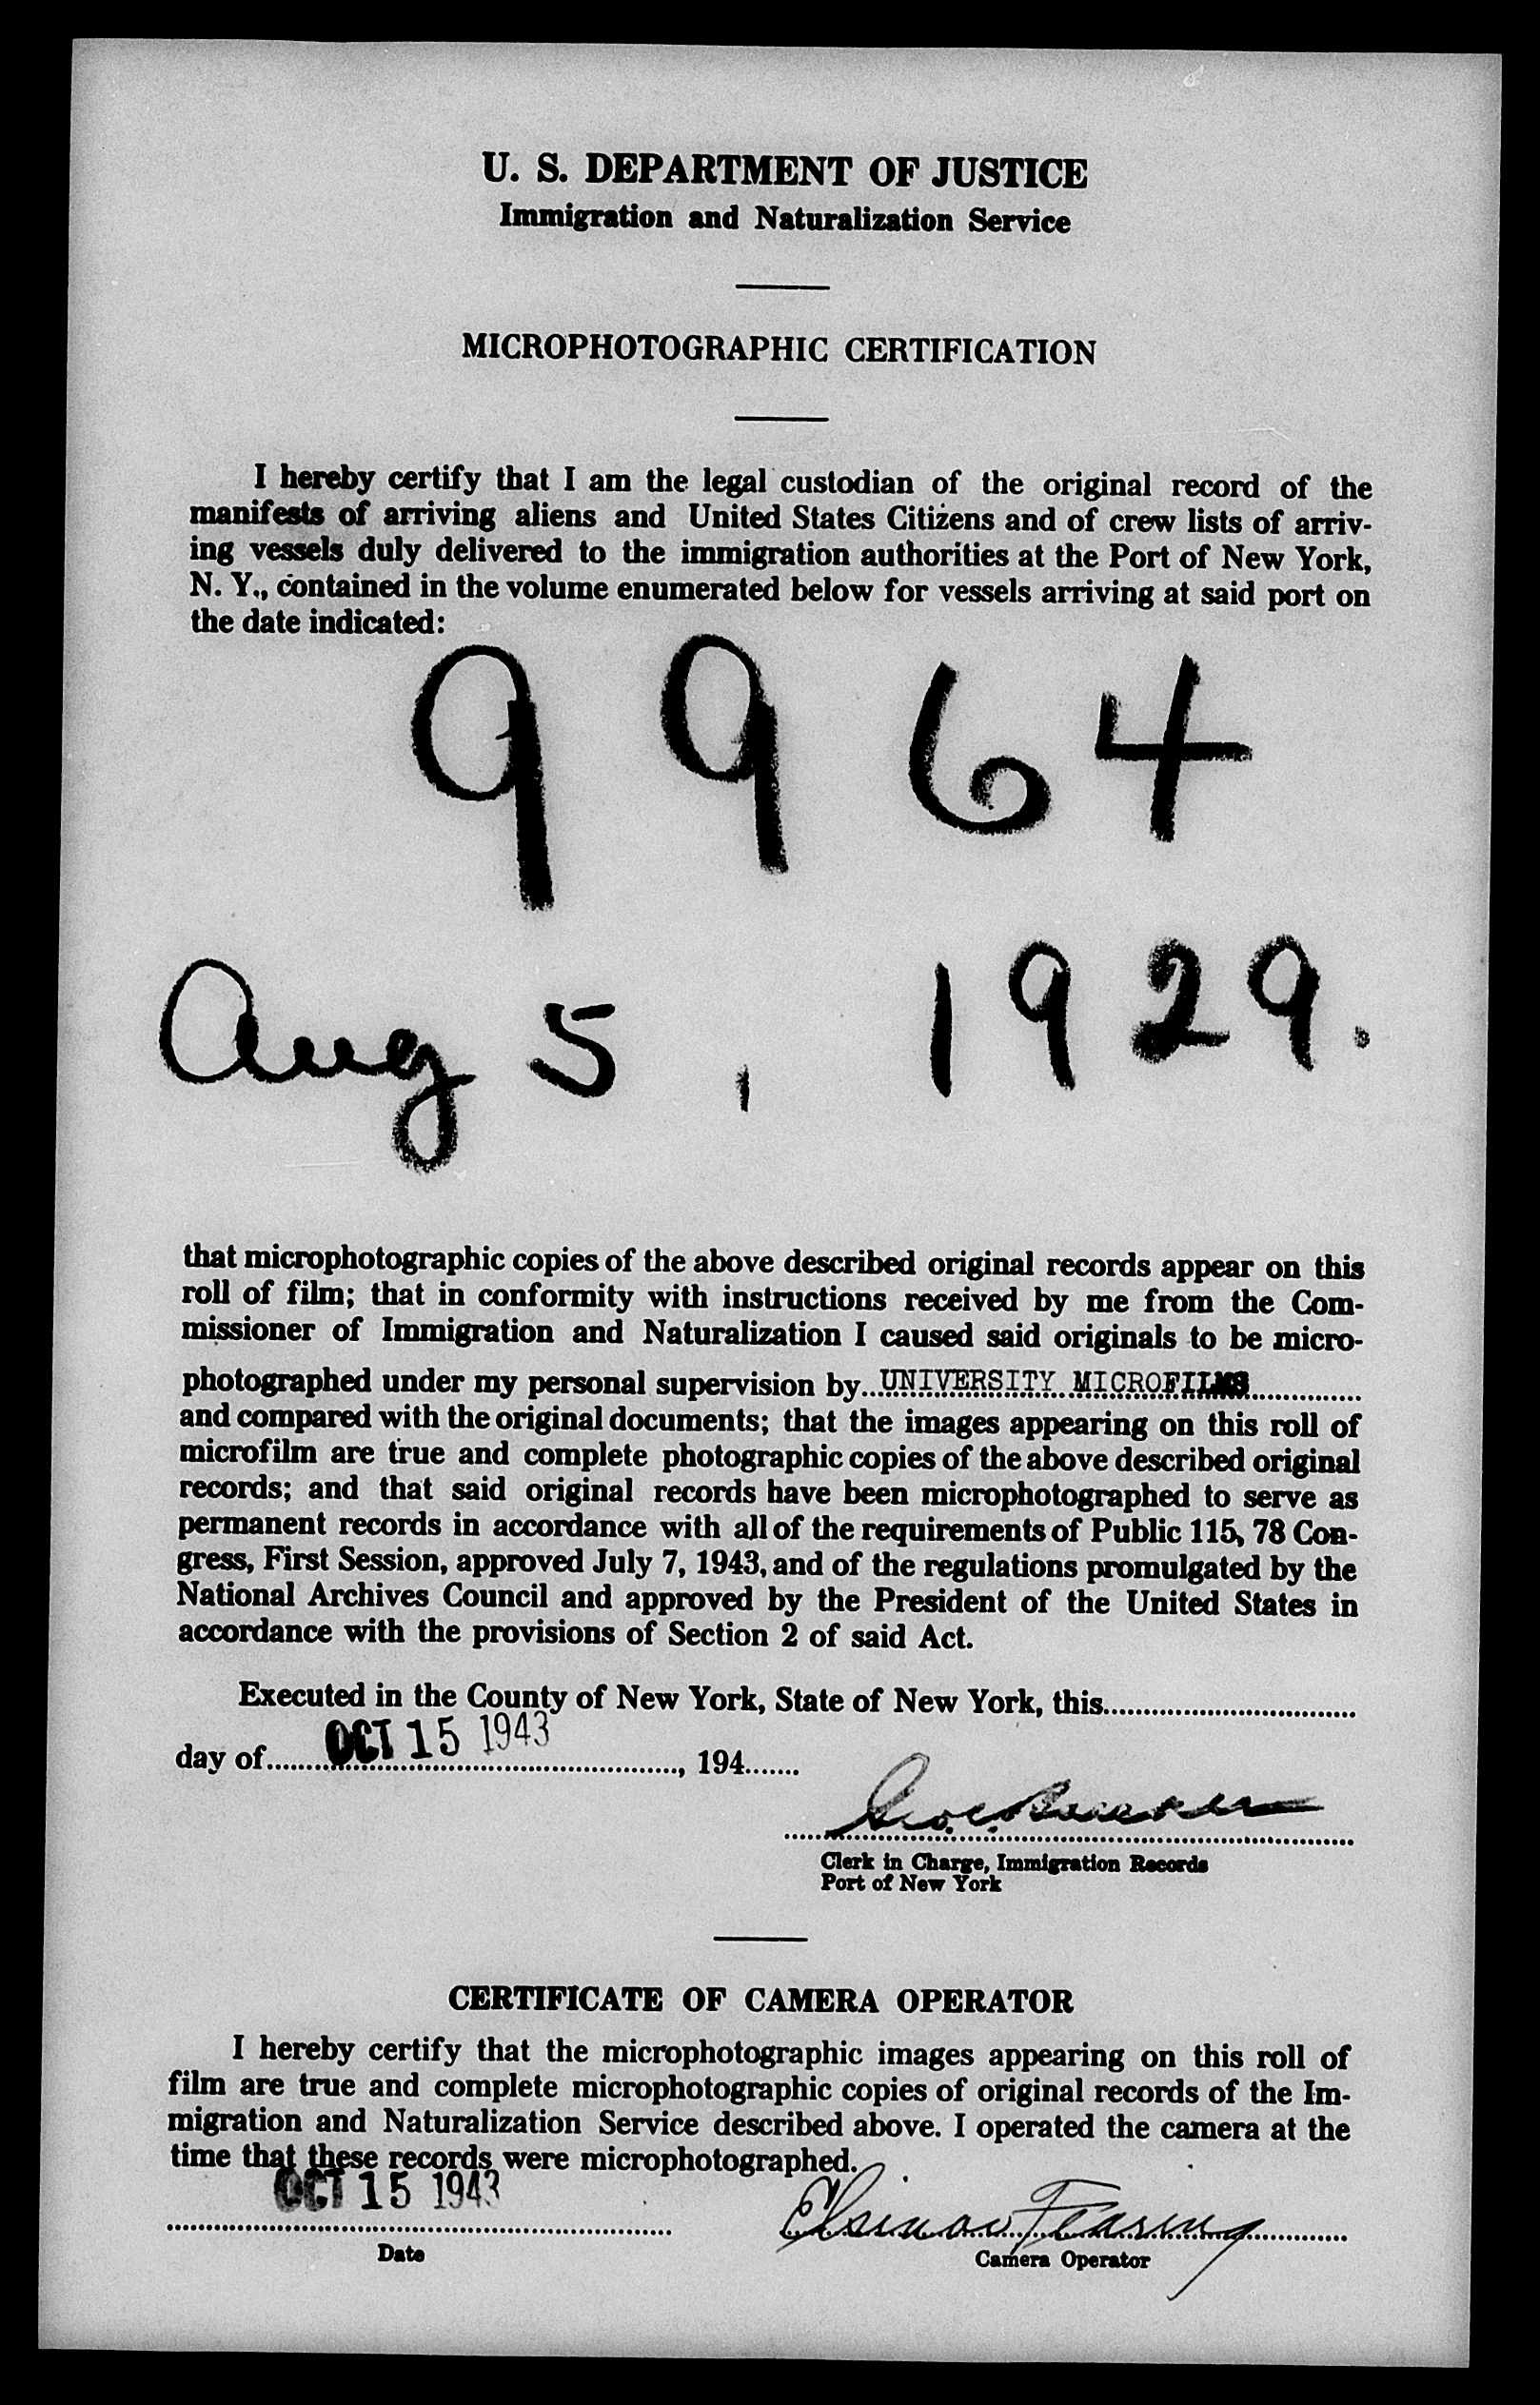 U. S. DEPARTMENT OF JUSTICE
Immigration and Naturalization Service
MICROPHOTOGRAPHIC CERTIFICATION
I hereby certify that I am the legal custodian of the original record of the
manifests of arriving aliens and United States Citizens and of crew lists of arriv-
ing vessels duly delivered to the immigration authorities at the Port of New York,
N. Y., contained in the volume enumerated below for vessels arriving at said port on
the date indicated:
9964
Aug 5, 1929.
that microphotographic copies of the above described original records appear on this
roll of film; that in conformity with instructions received by me from the Com-
missioner of Immigration and Naturalization I caused said originals to be micro-
photographed under my personal supervision by UNIVERSITY MICROFILMS
and compared with the original documents; that the images appearing on this roll of
microfilm are true and complete photographic copies of the above described original
records; and that said original records have been microphotographed to serve as
permanent records in accordance with all of the requirements of Public 115, 78 Con-
gress, First Session, approved July 7, 1943, and of the regulations promulgated by the
National Archives Council and approved by the President of the United States in
accordance with the provisions of Section 2 of said Act.
Executed in the County of New York, State of New York, this
day of OCT 15 1943, 194
Clerk in Charge, Immigration Records
Port of New York
CERTIFICATE OF CAMERA OPERATOR
I hereby certify that the microphotographic images appearing on this roll of
film are true and complete microphotographic copies of original records of the Im-
migration and Naturalization Service described above. I operated the camera at the
time that these records were microphotographed.
OCT 15 1943
Date
Camera Operator